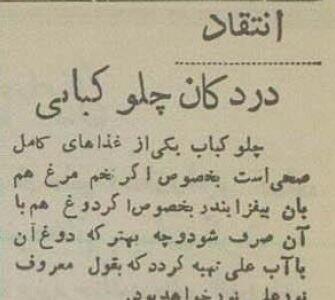 انتقاد
در دکان چلو کبابی
چلو کباب یکی از غذاهای کامل
صحی است بخصوص اگر تخم مرغ هم
بان بیفزایند بخصوص اگر دوغ هم با
آن صرف شود و چه بهتر که دوغ آن
با آب علی تهیه گردد که بقول معروف
نور علی نور خواهد بود.